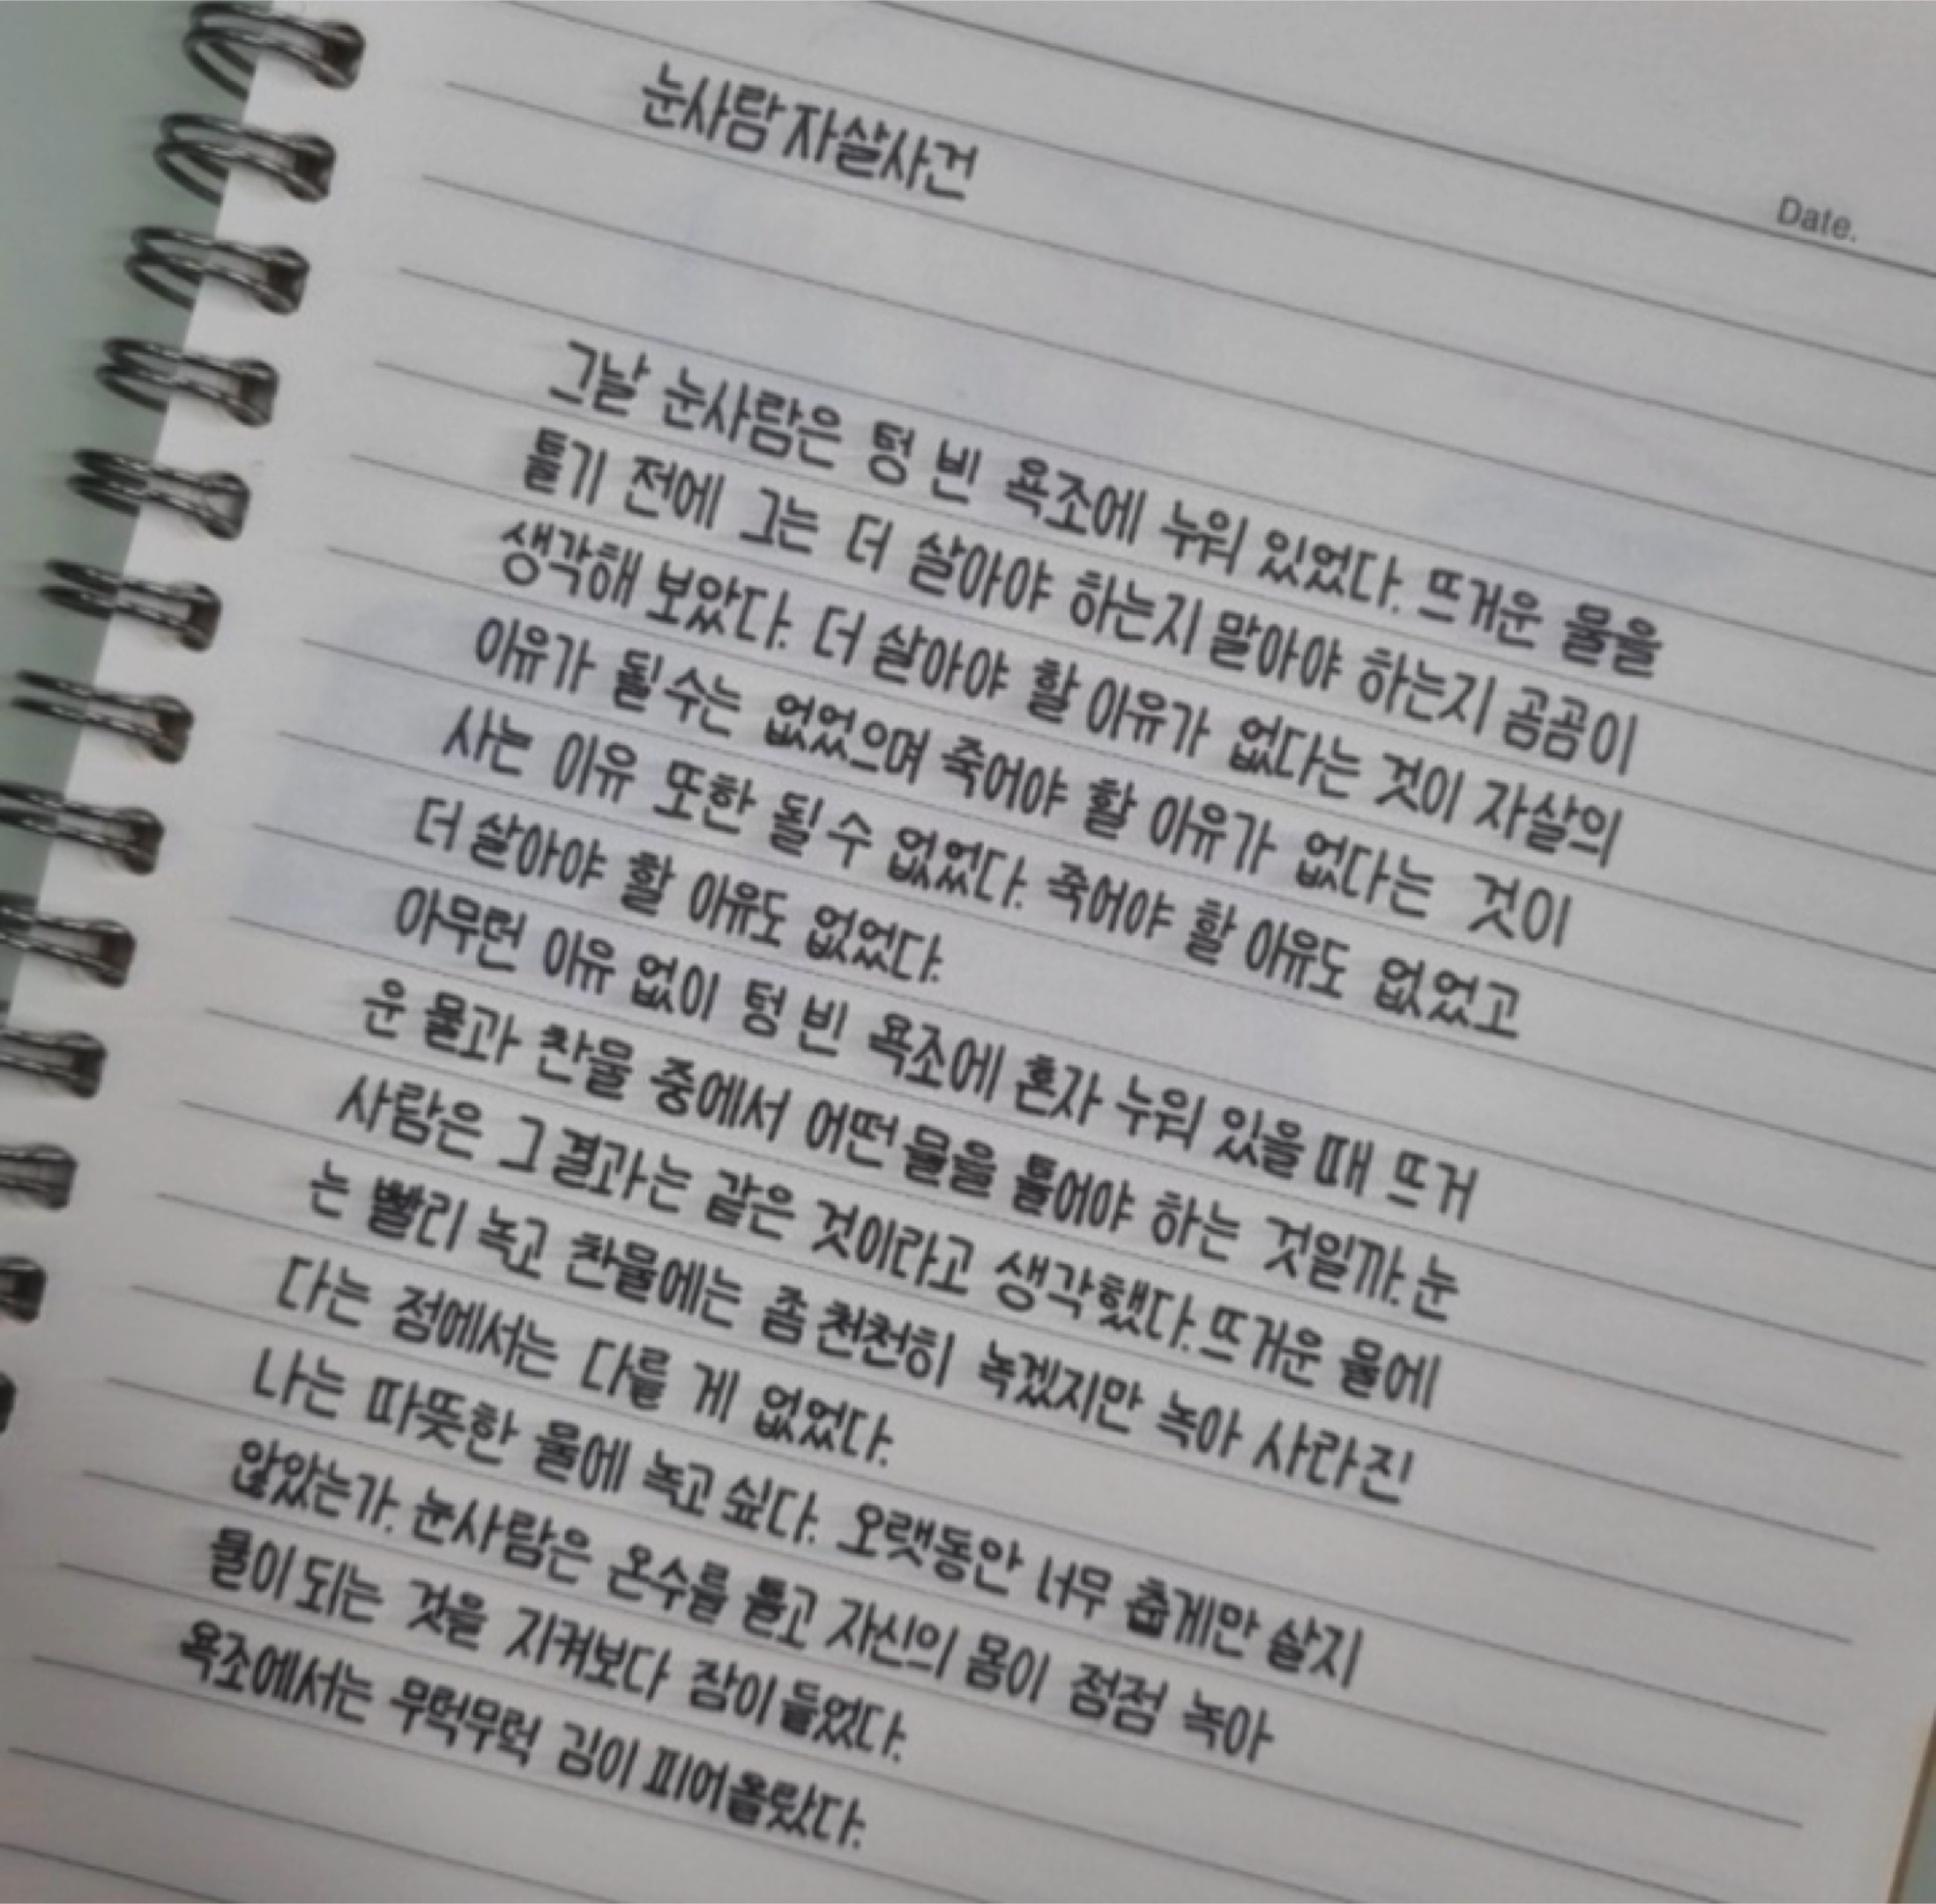 Date.
눈사람 자살사건
그날 눈사람은 텅 빈 욕조에 누워 있었다. 뜨거운 물을
틀기 전에 그는 더 살아야 하는지 말아야 하는지 곰곰이
생각해 보았다. 더 살아야 할 이유가 없다는 것이 자살의
이유가 될 수는 없었으며 죽어야 할 이유가 없다는 것이
사는 이유 또한 될 수 없었다. 죽어야 할 이유도 없었고
더 살아야 할 이유도 없었다.
아무런 이유 없이 텅 빈 욕조에 혼자 누워 있을 때 뜨거
운 물과 찬물 중에서 어떤 물을 틀어야 하는 것일까. 눈
사람은 그 결과는 같은 것이라고 생각했다. 뜨거운 물에
는 빨리 녹고 찬물에는 좀 천천히 녹겠지만 녹아 사라진
다는 점에서는 다를 게 없었다.
나는 따뜻한 물에 녹고 싶다. 오랫동안 너무 춥게만 살지
않았는가. 눈사람은 온수를 틀고 자신의 몸이 점점 녹아
물이 되는 것을 지켜보다 잠이 들었다.
욕조에서는 무럭무럭 김이 피어올랐다.